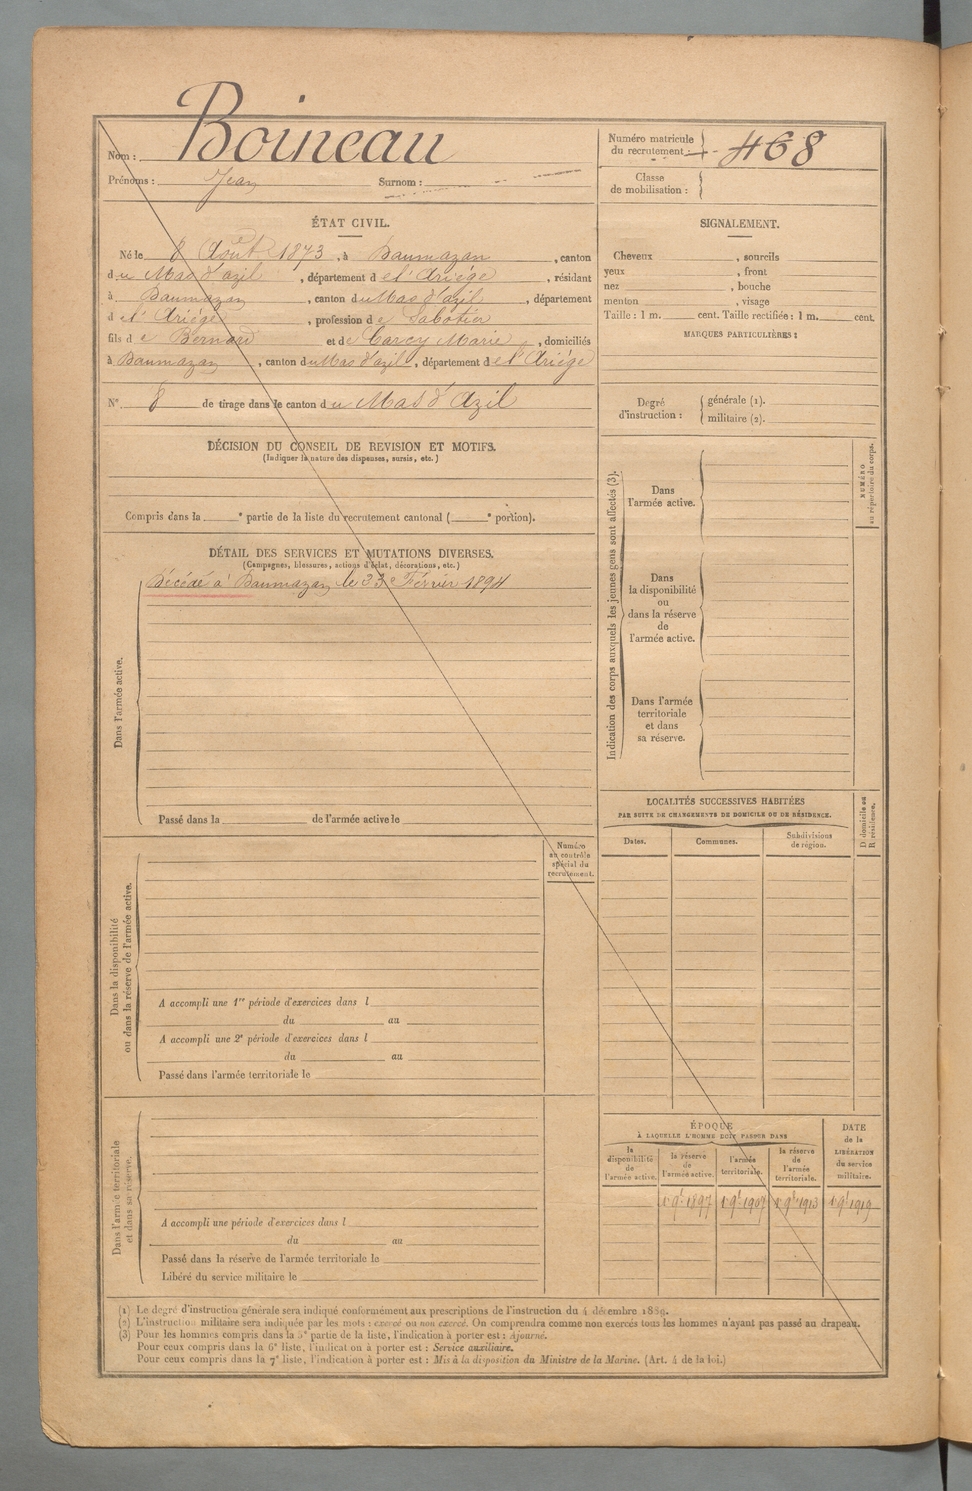 Nom : Boineau
Prénoms : Jean Surnom :
Numéro matricule
du recrutement 468
Classe
de mobilisation :
ÉTAT CIVIL.
Né le 8 Août 1873, à Daumazan, canton
du Mas d'azil, département de l'Ariége, résidant
à Daumazan, canton du Mas d'azil, département
de l'Ariége, profession de Sabotier
fils de Bernard et de Carcy Marie, domiciliés
à Daumazan, canton du Mas d'azil, département de l'Ariége
N° 8 de tirage dans le canton du Mas d'Azil
SIGNALEMENT.
Cheveux , sourcils
yeux , front
nez , bouche
menton , visage
Taille : 1 m. cent. Taille rectifiée : 1 m. cent.
MARQUES PARTICULIÈRES :
Degré
d'instruction :
générale (1).
militaire (2).
DÉCISION DU CONSEIL DE REVISION ET MOTIFS.
(Indiquer la nature des dispenses, sursis, etc.)
Compris dans la e partie de la liste du recrutement cantonal ( e portion).
DÉTAIL DES SERVICES ET MUTATIONS DIVERSES.
(Campagnes, blessures, actions d'éclat, décorations, etc.)
Décédé à Daumazan le Février 1894
Dans l'armée active.
Passé dans la de l'armée active le
Indication des corps auxquels les jeunes gens sont affectés (3).
Dans
l'armée active.
Dans
la disponibilité
ou
dans la réserve
de
l'armée active.
Dans l'armée
territoriale
et dans
sa réserve.
NUMÉRO
au répertoire du corps.
LOCALITÉS SUCCESSIVES HABITÉES
PAR SUITE DE CHANGEMENTS DE DOMICILE OU DE RÉSIDENCE.
D domicile ou
R résidence.
Dates.
Communes.
Subdivisions
de région.
Numéro
au contrôle
spécial du
recrutement.
Dans la disponibilité
ou dans la réserve de l'armée active.
A accompli une 1re période d'exercices dans l
du au
A accompli une 2e période d'exercices dans l
du au
Passé dans l'armée territoriale le
Dans l'armée territoriale
et dans sa réserve.
A accompli une période d'exercices dans l
du au
Passé dans la réserve de l'armée territoriale le
Libéré du service militaire le
ÉPOQUE
À LAQUELLE L'HOMME DOIT PASSER DANS
la
disponibilité
de
l'armée active.
la réserve
de
l'armée active.
l'armée
territoriale.
la réserve
de
l'armée
territoriale.
DATE
de la
LIBÉRATION
du service
militaire.
1897 1907 1913 1919
(1) Le degré d'instruction générale sera indiqué conformément aux prescriptions de l'instruction du 4 décembre 1889.
(2) L'instruction militaire sera indiquée par les mots : exercé ou non exercé. On comprendra comme non exercés tous les hommes n'ayant pas passé au drapeau.
(3) Pour les hommes compris dans la 5e partie de la liste, l'indication à porter est : Ajourné.
Pour ceux compris dans la 6e liste, l'indication à porter est : Service auxiliaire.
Pour ceux compris dans la 7e liste, l'indication à porter est : Mis à la disposition du Ministre de la Marine. (Art. 4 de la loi.)